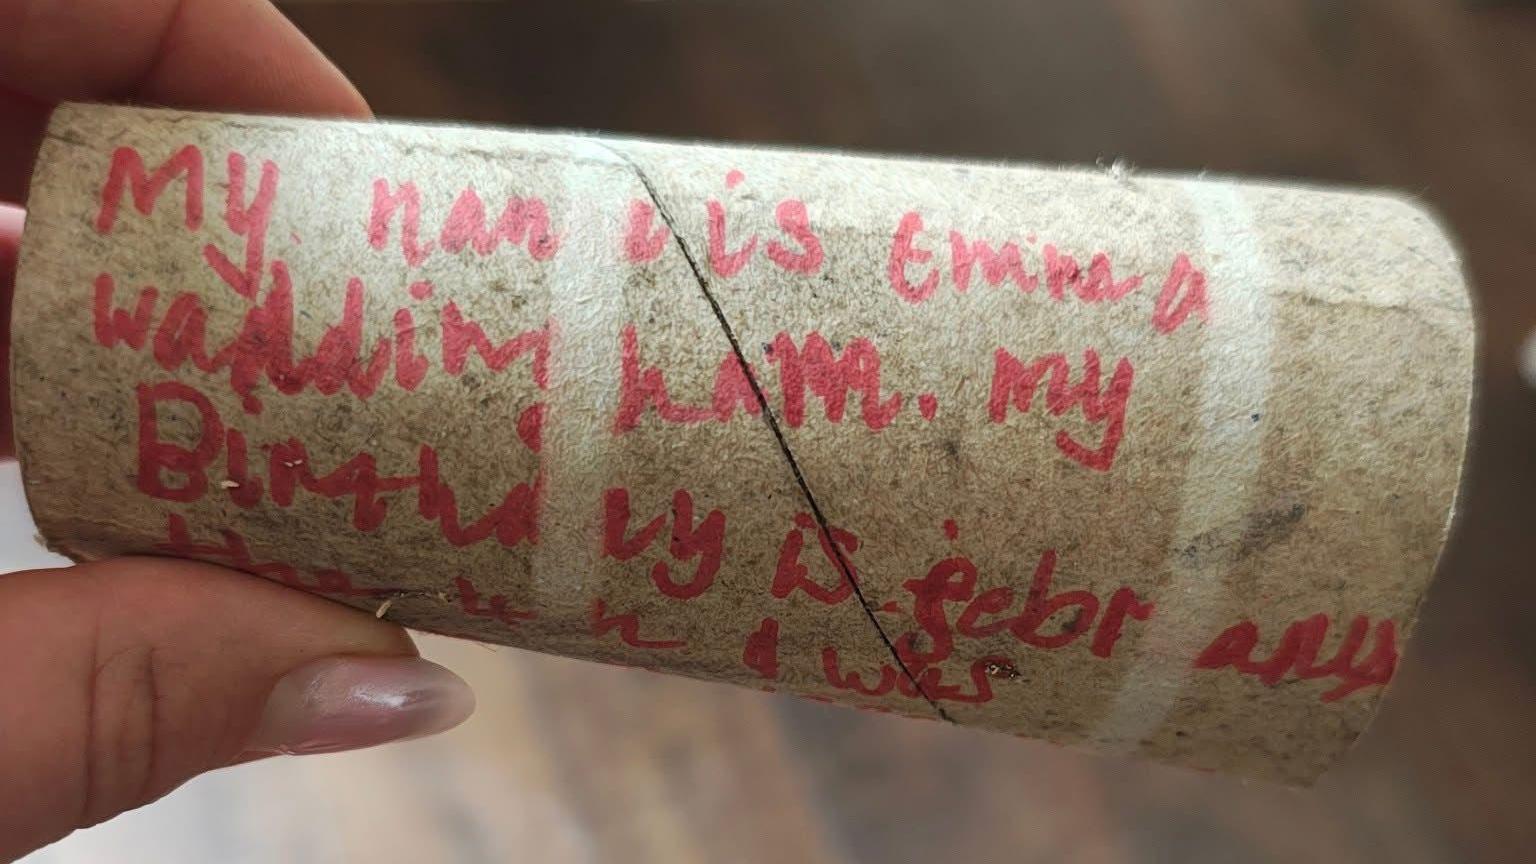 My nam is Emma
waddin ham. my
Birtha y is febr ary
the h I was